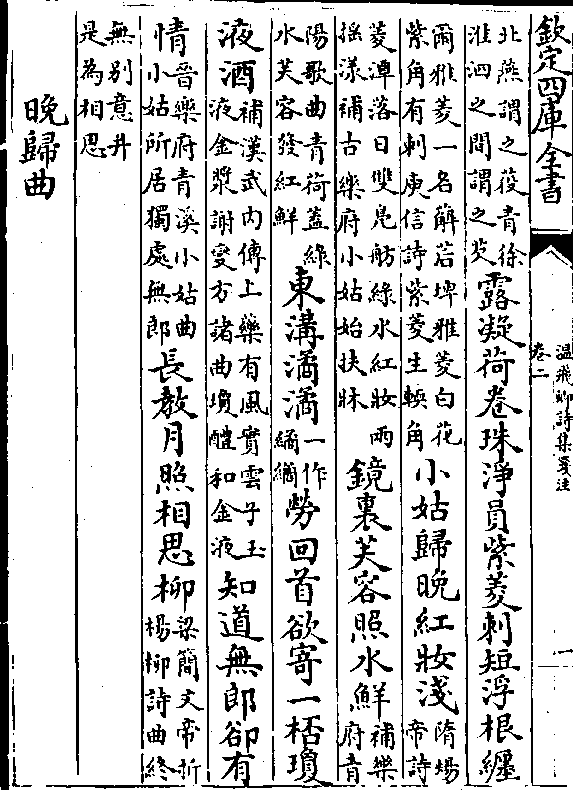 欽定四庫全書
溫飛卿詩集箋注
卷二
一
北燕謂之䓈青徐
淮泗之間謂之芡
露凝荷卷珠淨員紫菱刺短浮根纏
爾雅菱一名薢茩埤雅菱白花
紫角有刺庾信詩紫菱生軟角
小姑歸晚紅妝淺
隋煬
帝詩
菱潭落日雙鳧舫綠水紅妝兩
摇漾補古樂府小姑始扶牀
鏡裏芙容照水鮮
補樂
府青
陽歌曲青荷葢綠
水芙容發紅鮮
東溝潏潏
一作
繘繘
勞回首欲寄一桮瓊
液酒
補漢武内傳上藥有風實雲子玉
液金漿謝燮方諸曲瓊醴和金液
知道無郎卻有
情
晉樂府青溪小姑曲
小姑所居獨處無郎
長教月照相思柳
梁簡文帝折
楊柳詩曲終
無别意并
是為相思
晚歸曲